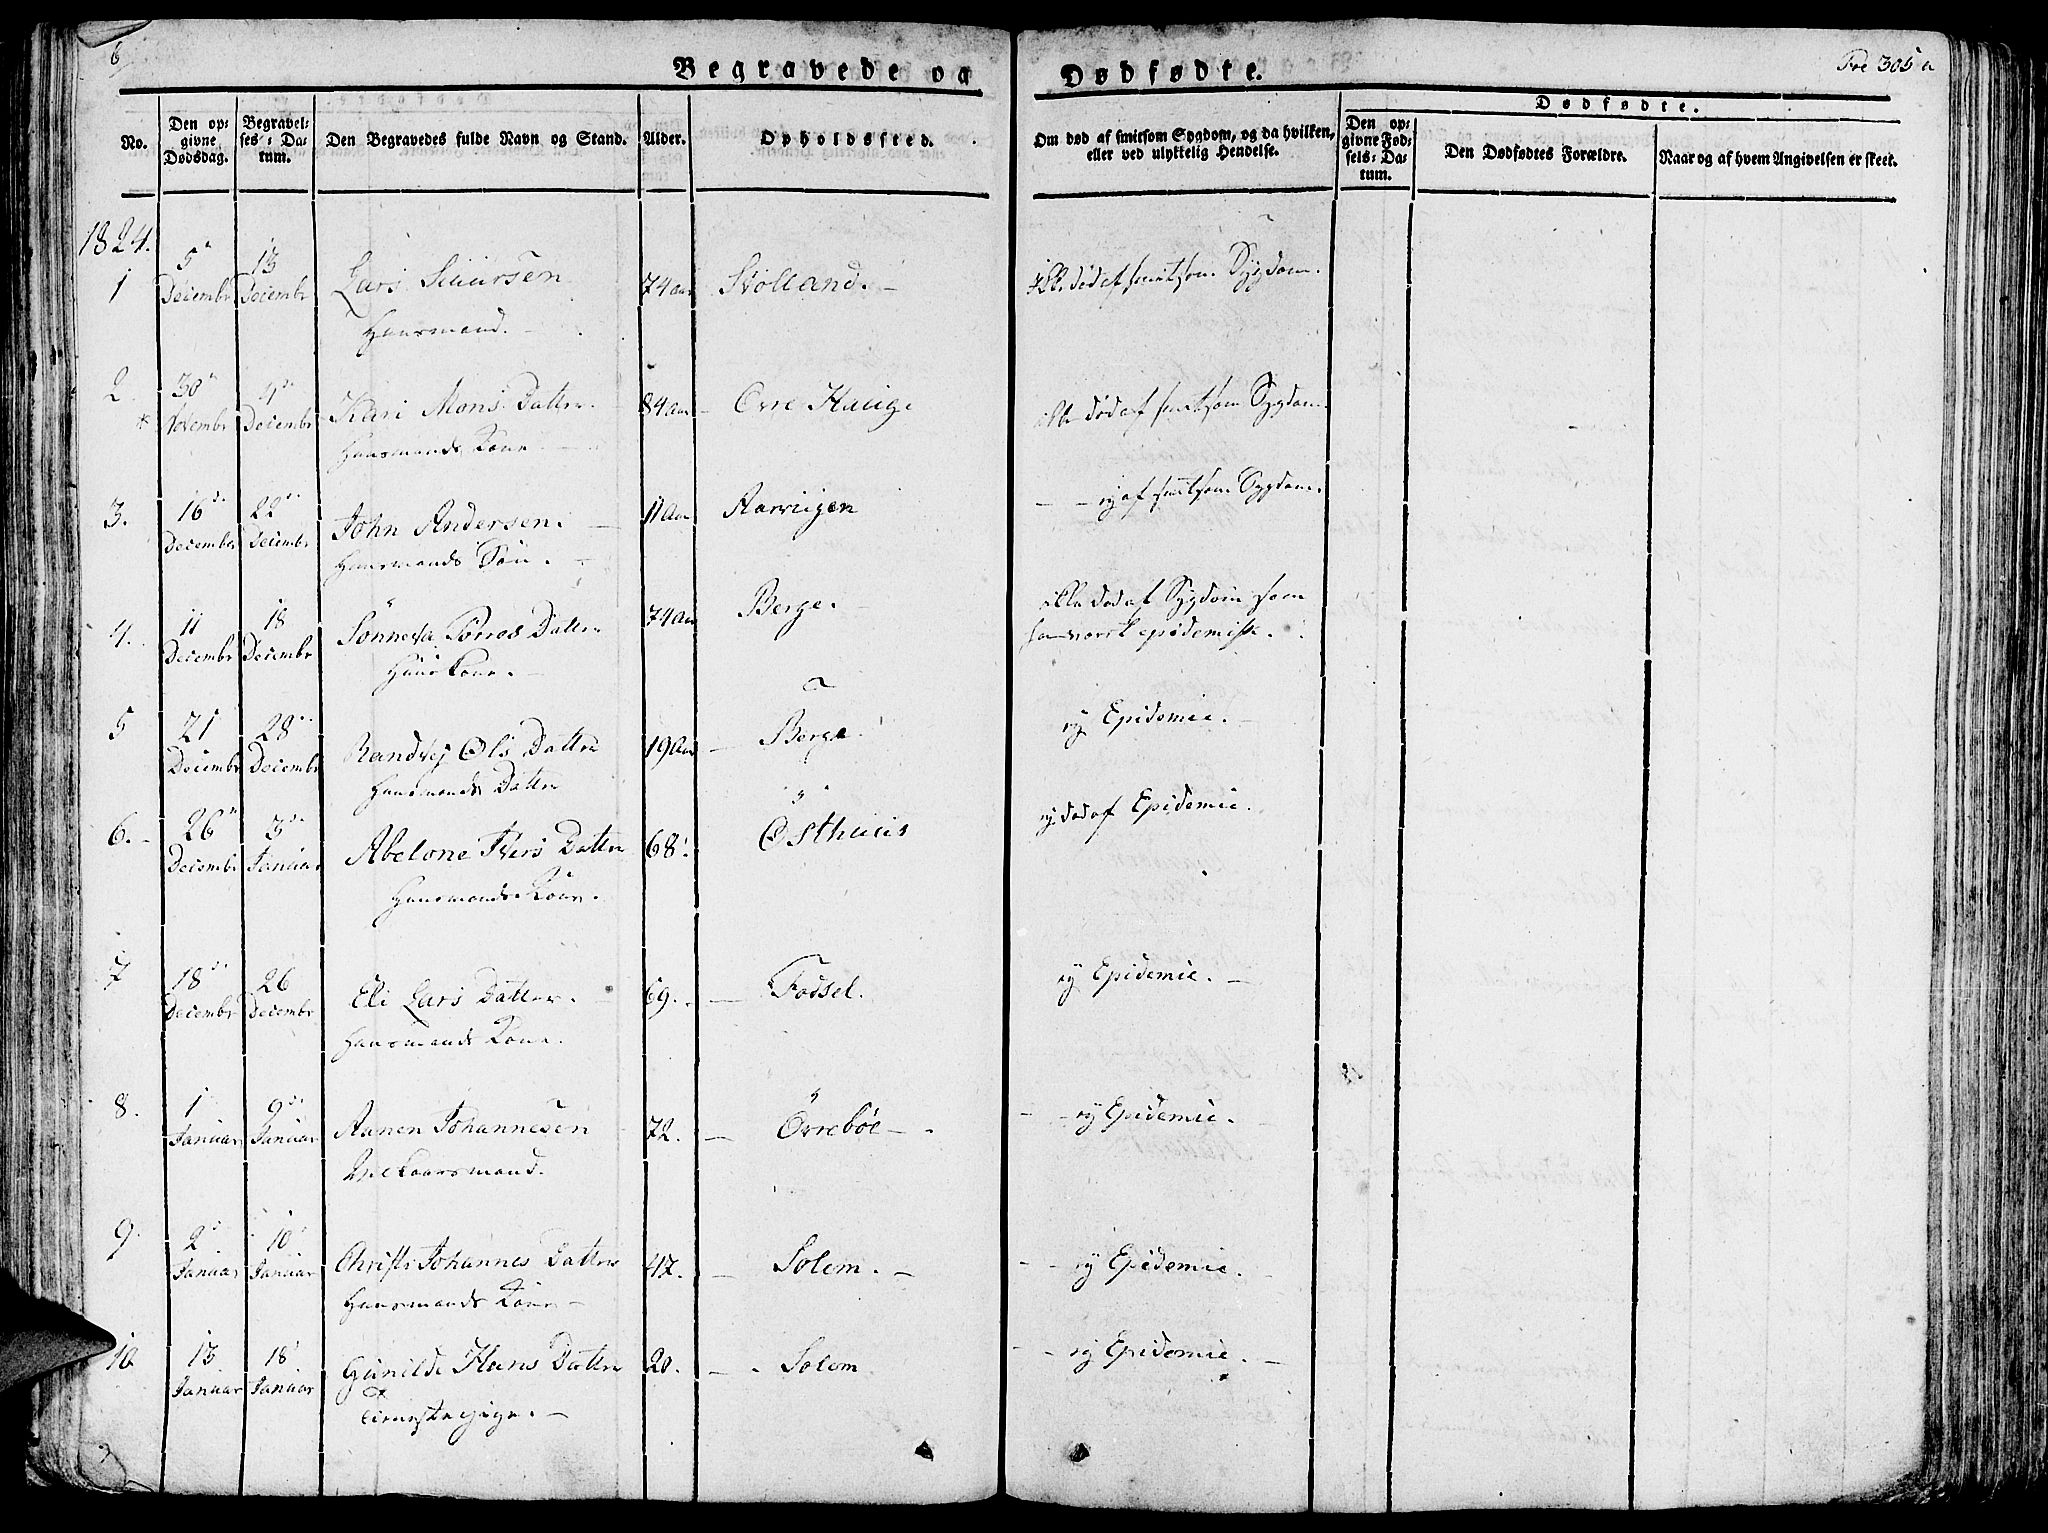 6
Begravede og Dødfødte.
Fol 305 a
No.
Den opgivne Dødsdag.
Begravelses-Datum.
Den Begravedes fulde Navn og Stand.
Alder.
Opholdssted.
Om død af smitsom Sygdom, og da hvilken, eller ved ulykkelig Hendelse.
Dødfødte.
Den opgivne Fødsels-Datum.
Den Dødfødtes Forældre.
Naar og af hvem Angivelsen er skeet.
1824.
1 5 Decembr 13 Decembr Lars 74 Aar Stølland. ikke død af smitsom Sygdom.
Huusmand.
2 30 Novembr 9de Decembr Kari Mons Datter 84 Aar Øvre Hauge ikke død af smitsom Sygdom
Huusmands Kone
3. 16de December 22de Decembr John Andersen. 11 Aar ej af smitsom Sygdom.
Huusmands Søn.
4. 11 Decembr 18 Decembr Sønneva Datter 74 Aar Berge. ikke død af Sygdom som
Huuskone.
5 21 Decembr 28de Decembr Randvej Ols Datter 19 Aar Berge ej Epidemie.
Huusmands Datter
6. 26 Decembr 3de Januar Abelone Ivers Datter 68. Østhuus ej død af Epidemie.
Huusmands Kone.
7 18de Decembr 26 Decembr Eli Lars Datter. 69. Fossel. ej Epidemie.
Huusmands Kone.
8. 1 Januar 9de Januar Aamen Johannesen 72. Övrebøe ej Epidemie.
9. 2de Januar 10 Januar Christi Johannes Datter 47. Solem. ej Epidemie.
Huusmands Kone
10 13 Januar 18 Januar Gunilde Hans Datter 20. Solem. ej Epidemie.
Tienestepige.